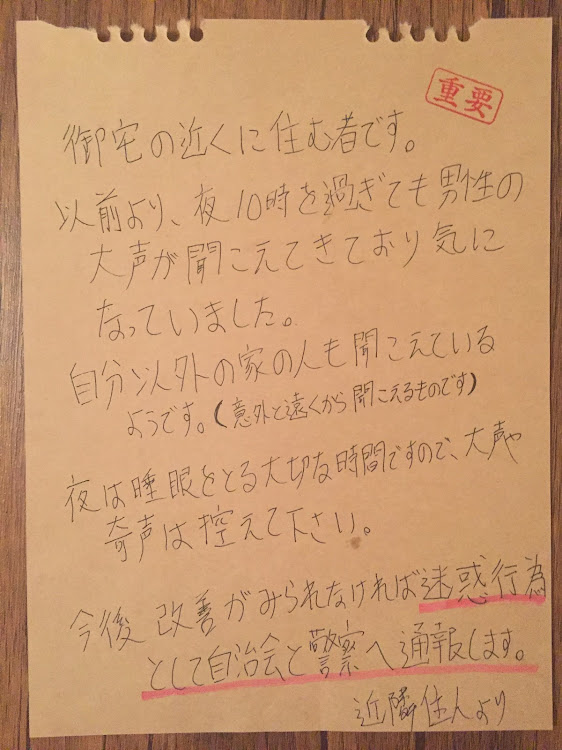 重要
御宅の近くに住む者です。
以前より、夜10時を過ぎても男性の
大声が聞こえてきており気に
なっていました。
自分以外の家の人も聞こえている
ようです。(意外と遠くから聞こえるものです)
夜は睡眠をとる大切な時間ですので、大声や
奇声は控えて下さい。
今後 改善がみられなければ迷惑行為
として自治会と警察へ通報します。
近隣住人より